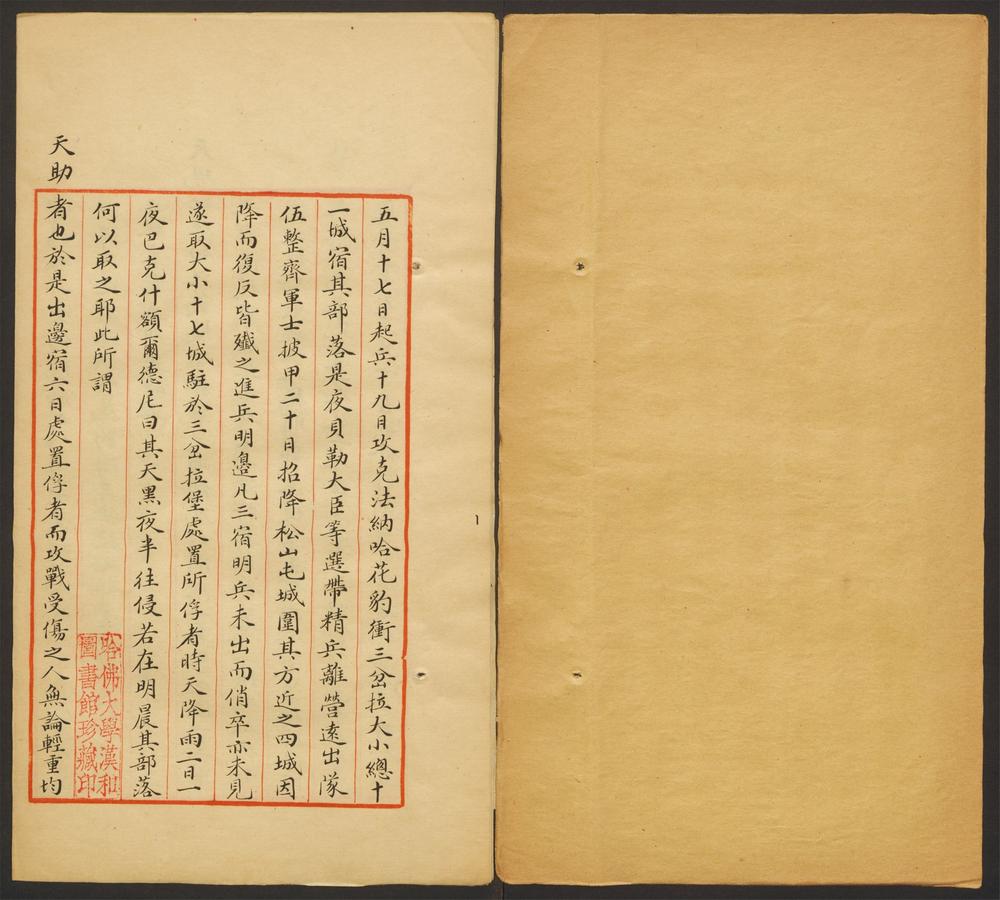 五月十七日起兵十九日攻克法納哈花豹衝三岔拉大小總十
一城宿其部落是夜貝勒大臣等選帶精兵離營遠出隊
伍整齊軍士披甲二十日招降松山屯城圍其方近之四城因
降而復反皆殲之進兵明邊凡三宿明兵未出而俏卒亦未見
遂取大小十七城駐於三岔拉堡處置所俘者時天降雨二日一
夜巴克什額爾德尼曰其天黑夜半往侵若在明晨其部落
何以取之耶此所謂
天助者也於是出邊宿六日處置俘者而攻戰受傷之人無論輕重均
哈佛大學漢和
圖書館珍藏印